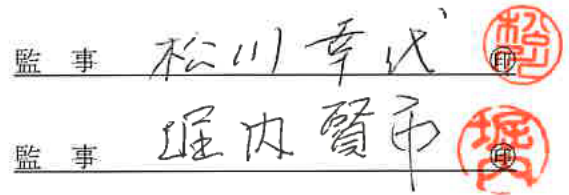 監事 松川幸代 ㊞ 松川
監事 堀内賢市 ㊞ 堀内